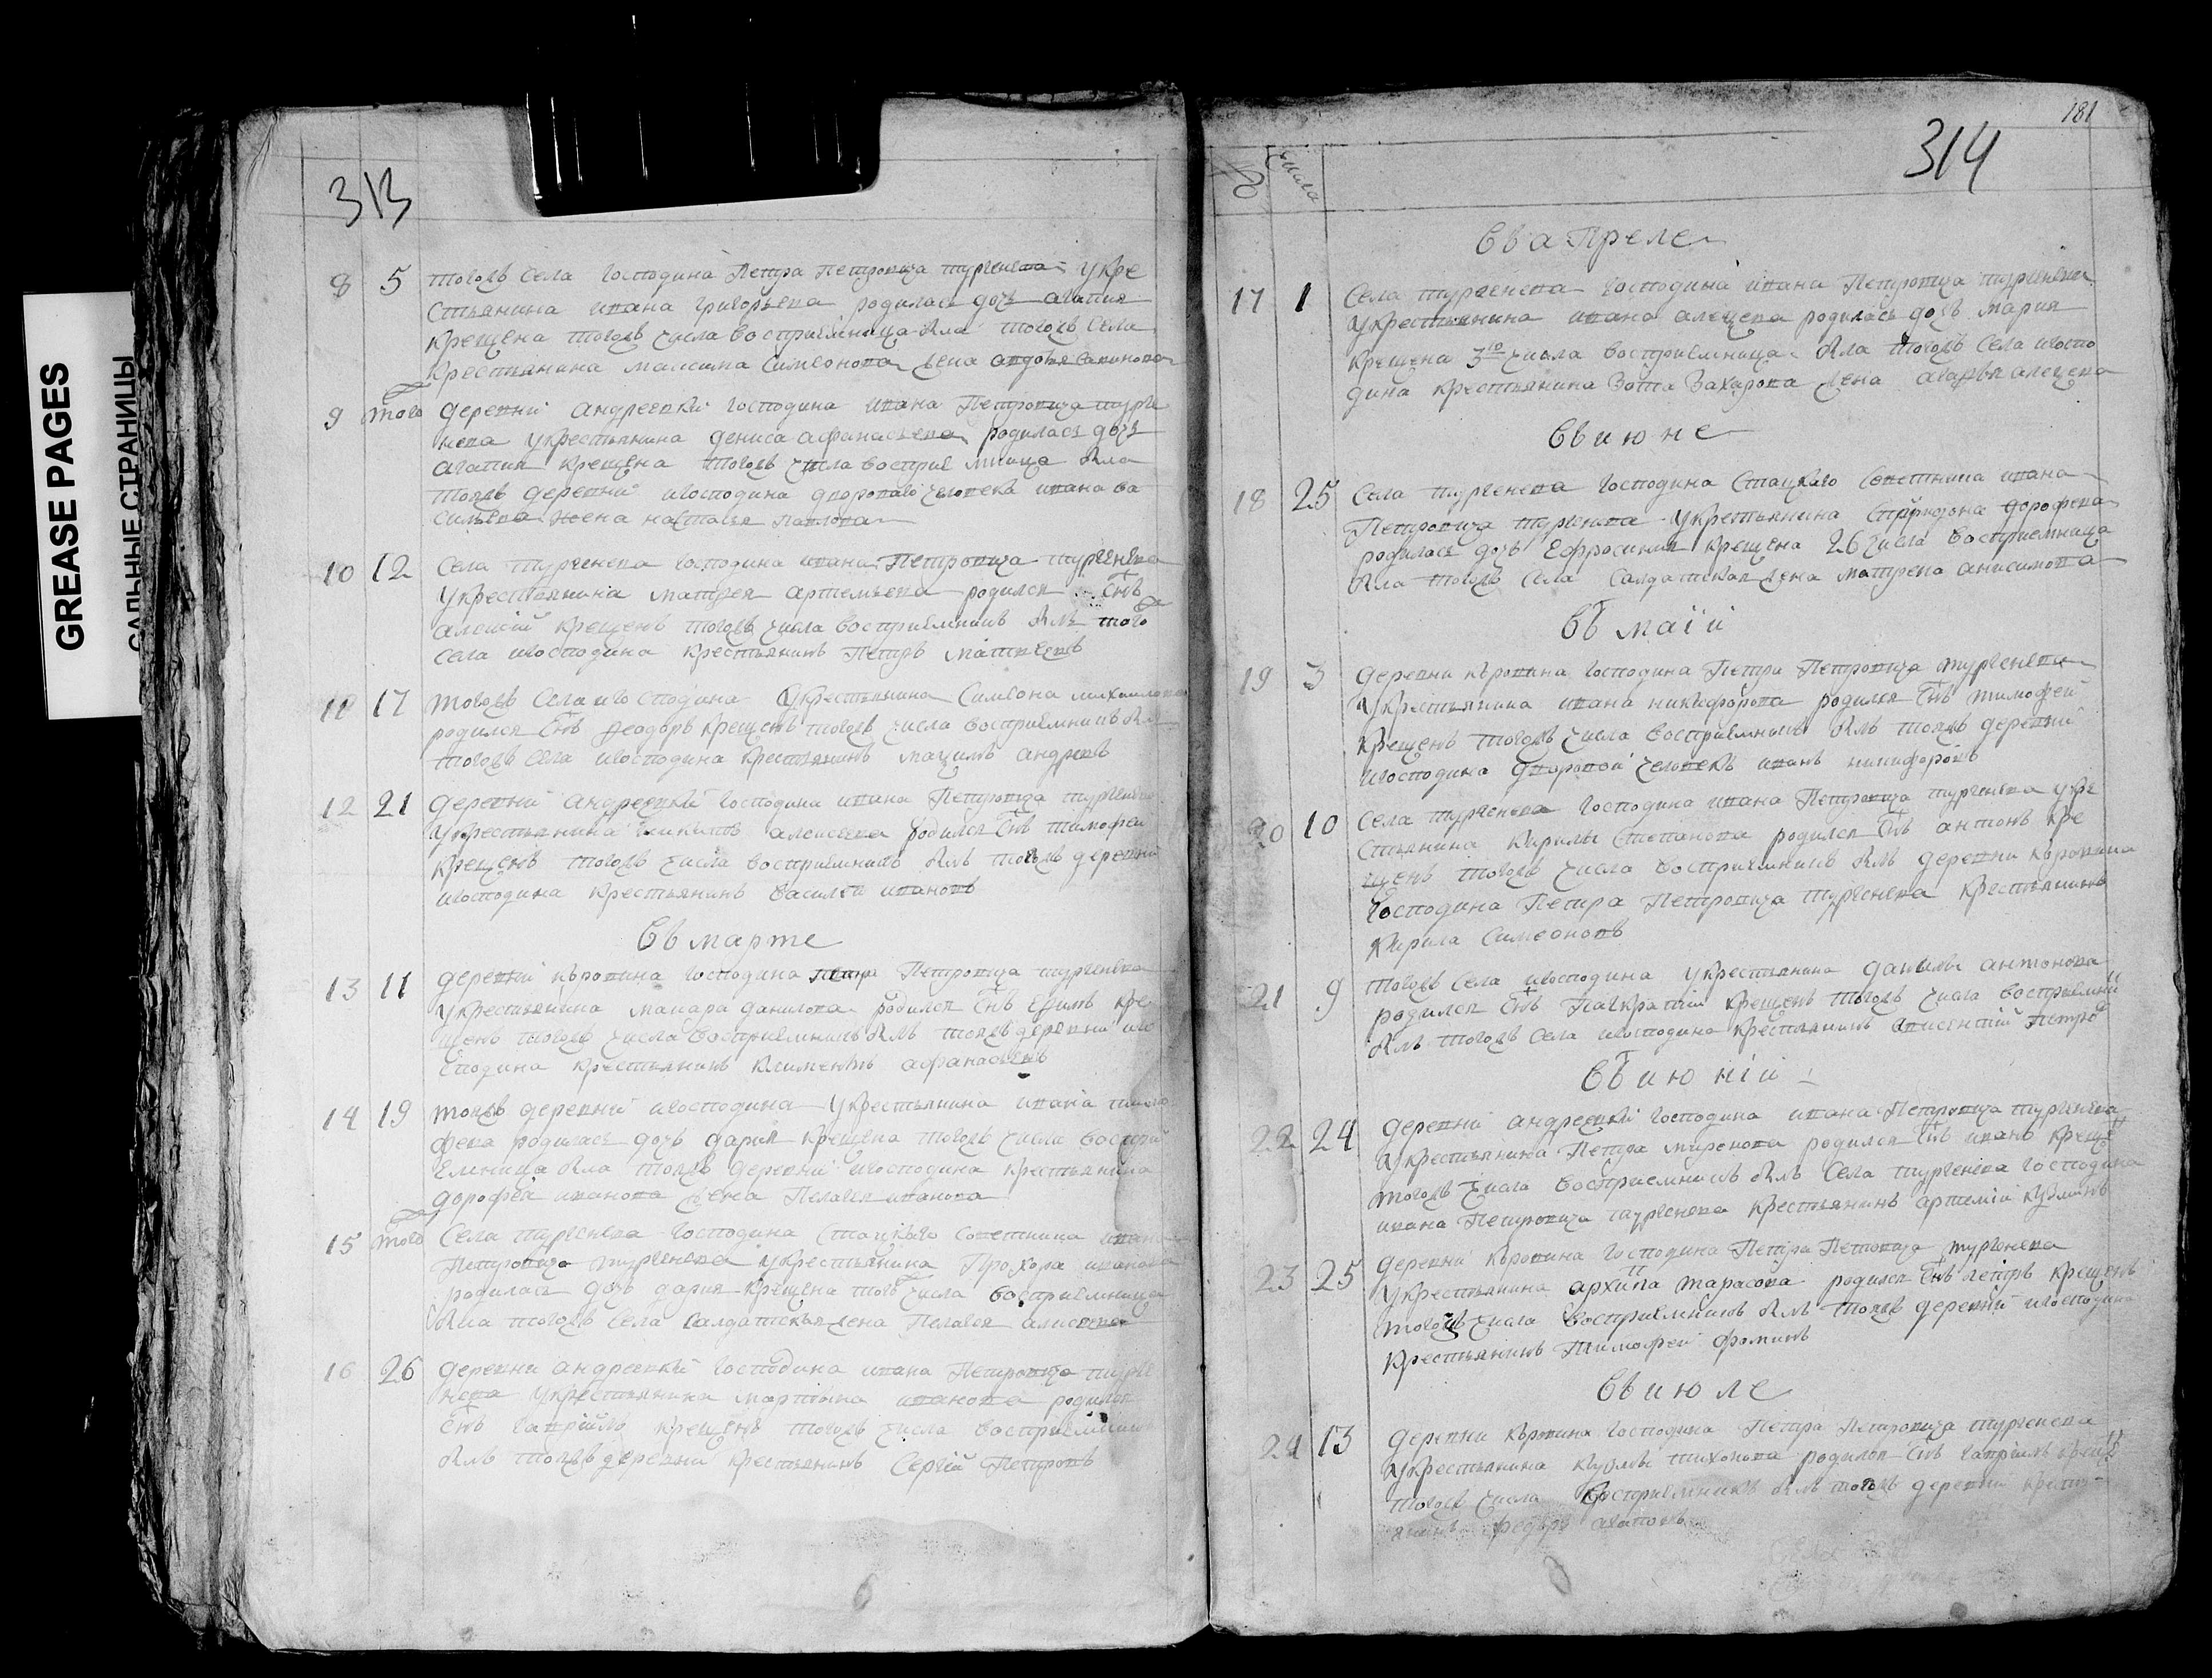 GREASE PAGES
САЛЬНЫЕ СТРАНИЦЫ
313
8 5 тогожъ села господина Петра Петровича тургенева укре
стьянина ивана григорьева родилась дочь агапия
крещена тогожъ числа восприемница была тогожъ села
крестьянина максима симеонова жена авдотья
9 того деревни андреевки господина ивана Петровича турге
нева укрестьянина дениса афанасьева родилась дочь
агапия крещена тогожъ числа восприемница была
тояжъ деревни игосподина дворового человека ивана ва
сильева жена настасья павлова
10 12 Села тургенева господина ивана Петровича тургенева
укрестьянина матвея артемьева родился снъ
алексiй крещенъ тогожъ числа восприемникъ былъ того
села игосподина крестьянинъ Петръ матвеевъ
11 17 тогожъ села игосподина укрестьянина Симеона михаилова
родился снъ феодоръ крещенъ тогожъ числа восприемникъ былъ
тогожъ села игосподина крестьянинъ андреевъ
12 21 деревни андреевки господина ивана Петровича тургенева
укрестьянина алексеева родился снъ тимофеи
крещенъ тогожъ числа восприемникъ былъ тояжъ деревни
игосподина крестьянинъ василеи ивановъ
въ марте
13 11 деревни господина петра Петровича тургенева
укрестьянина макара данилова родился снъ ефимъ кре
щенъ тогожъ числа восприемникъ былъ тояжъ деревни иго
сподина крестьянинъ климентъ афанасьевъ
14 19 тояжъ деревни игосподина укрестьянина ивана тимо
феева родилась дочь дария крещена тогожъ числа воспри
емница была тояжъ деревни игосподина крестьянина
дорофея иванова жена Пелагея иванова
15 того Села тургенева господина стацкаго советника ивана
Петровича тургенева укрестьянина Прохора иванова
родилась дочь дария крещена того числа восприемница
была тогожъ села салдатская жена Пелагея алексеева
16 26 деревни андреевки господина ивана Петровича турге
нева укрестьянина мартина иванова родился
снъ гаврiило крещенъ тогожъ числа восприемникъ
былъ тояжъ деревни крестьянинъ Сергiй Петровъ
181
314
№ Числа
въ апреле
17 1 Села тургенева господина ивана Петровича тургенева
укрестьянина ивана алексеева родилась дочь мария
крещена 3го числа восприемница была тогожъ села игоспо
дина крестьянина Зота Захарова жена алексеева
въ июне
18 25 Села тургенева господина Стацкаго советника ивана
Петровича тургенева укрестьянина Спиридона дорофеева
родилась дочь Ефросиния крещена 26 числа восприемница
была тогожъ села салдатская жена матрена анисимова
въ маiи
19 3 деревни господина Петра Петровича тургенева
укрестьянина ивана никифорова родился снъ тимофеи
крещенъ тогожъ числа восприемникъ былъ тояжъ деревни
игосподина дворовой человекъ иванъ никифоровъ
20 10 Села тургенева господина ивана Петровича тургенева укре
стьянина кирилы Степанова родился снъ антонъ кре
щенъ тогожъ числа восприемникъ былъ деревни
господина Петра Петровича тургенева крестьянинъ
кирила Симеоновъ
21 9 тогожъ села игосподина укрестьянина данилы антонова
родился снъ крещенъ тогожъ числа восприемни
былъ тогожъ села игосподина крестьянинъ Петро
въ июнiи
22 24 деревни андреевки господина ивана Петровича тургенева
укрестьянина Петра миронова родился снъ иванъ креще
тогожъ числа восприемникъ былъ Села тургенева господина
ивана Петровича тургенева крестьянинъ артемiй кузминъ
23 25 деревни господина Петра Петровича тургенева
укрестьянина архипа тарасова родился снъ петръ крещенъ
тогожъ числа восприемникъ былъ тояжъ деревни игосподина
крестьянинъ Тимофеи фоминъ
въ июле
24 13 деревни господина Петра Петровича тургенева
укрестьянина кузмы тихонова родился снъ
тогожъ числа восприемникъ былъ тояжъ деревни кресть
янинъ федоръ агаповъ